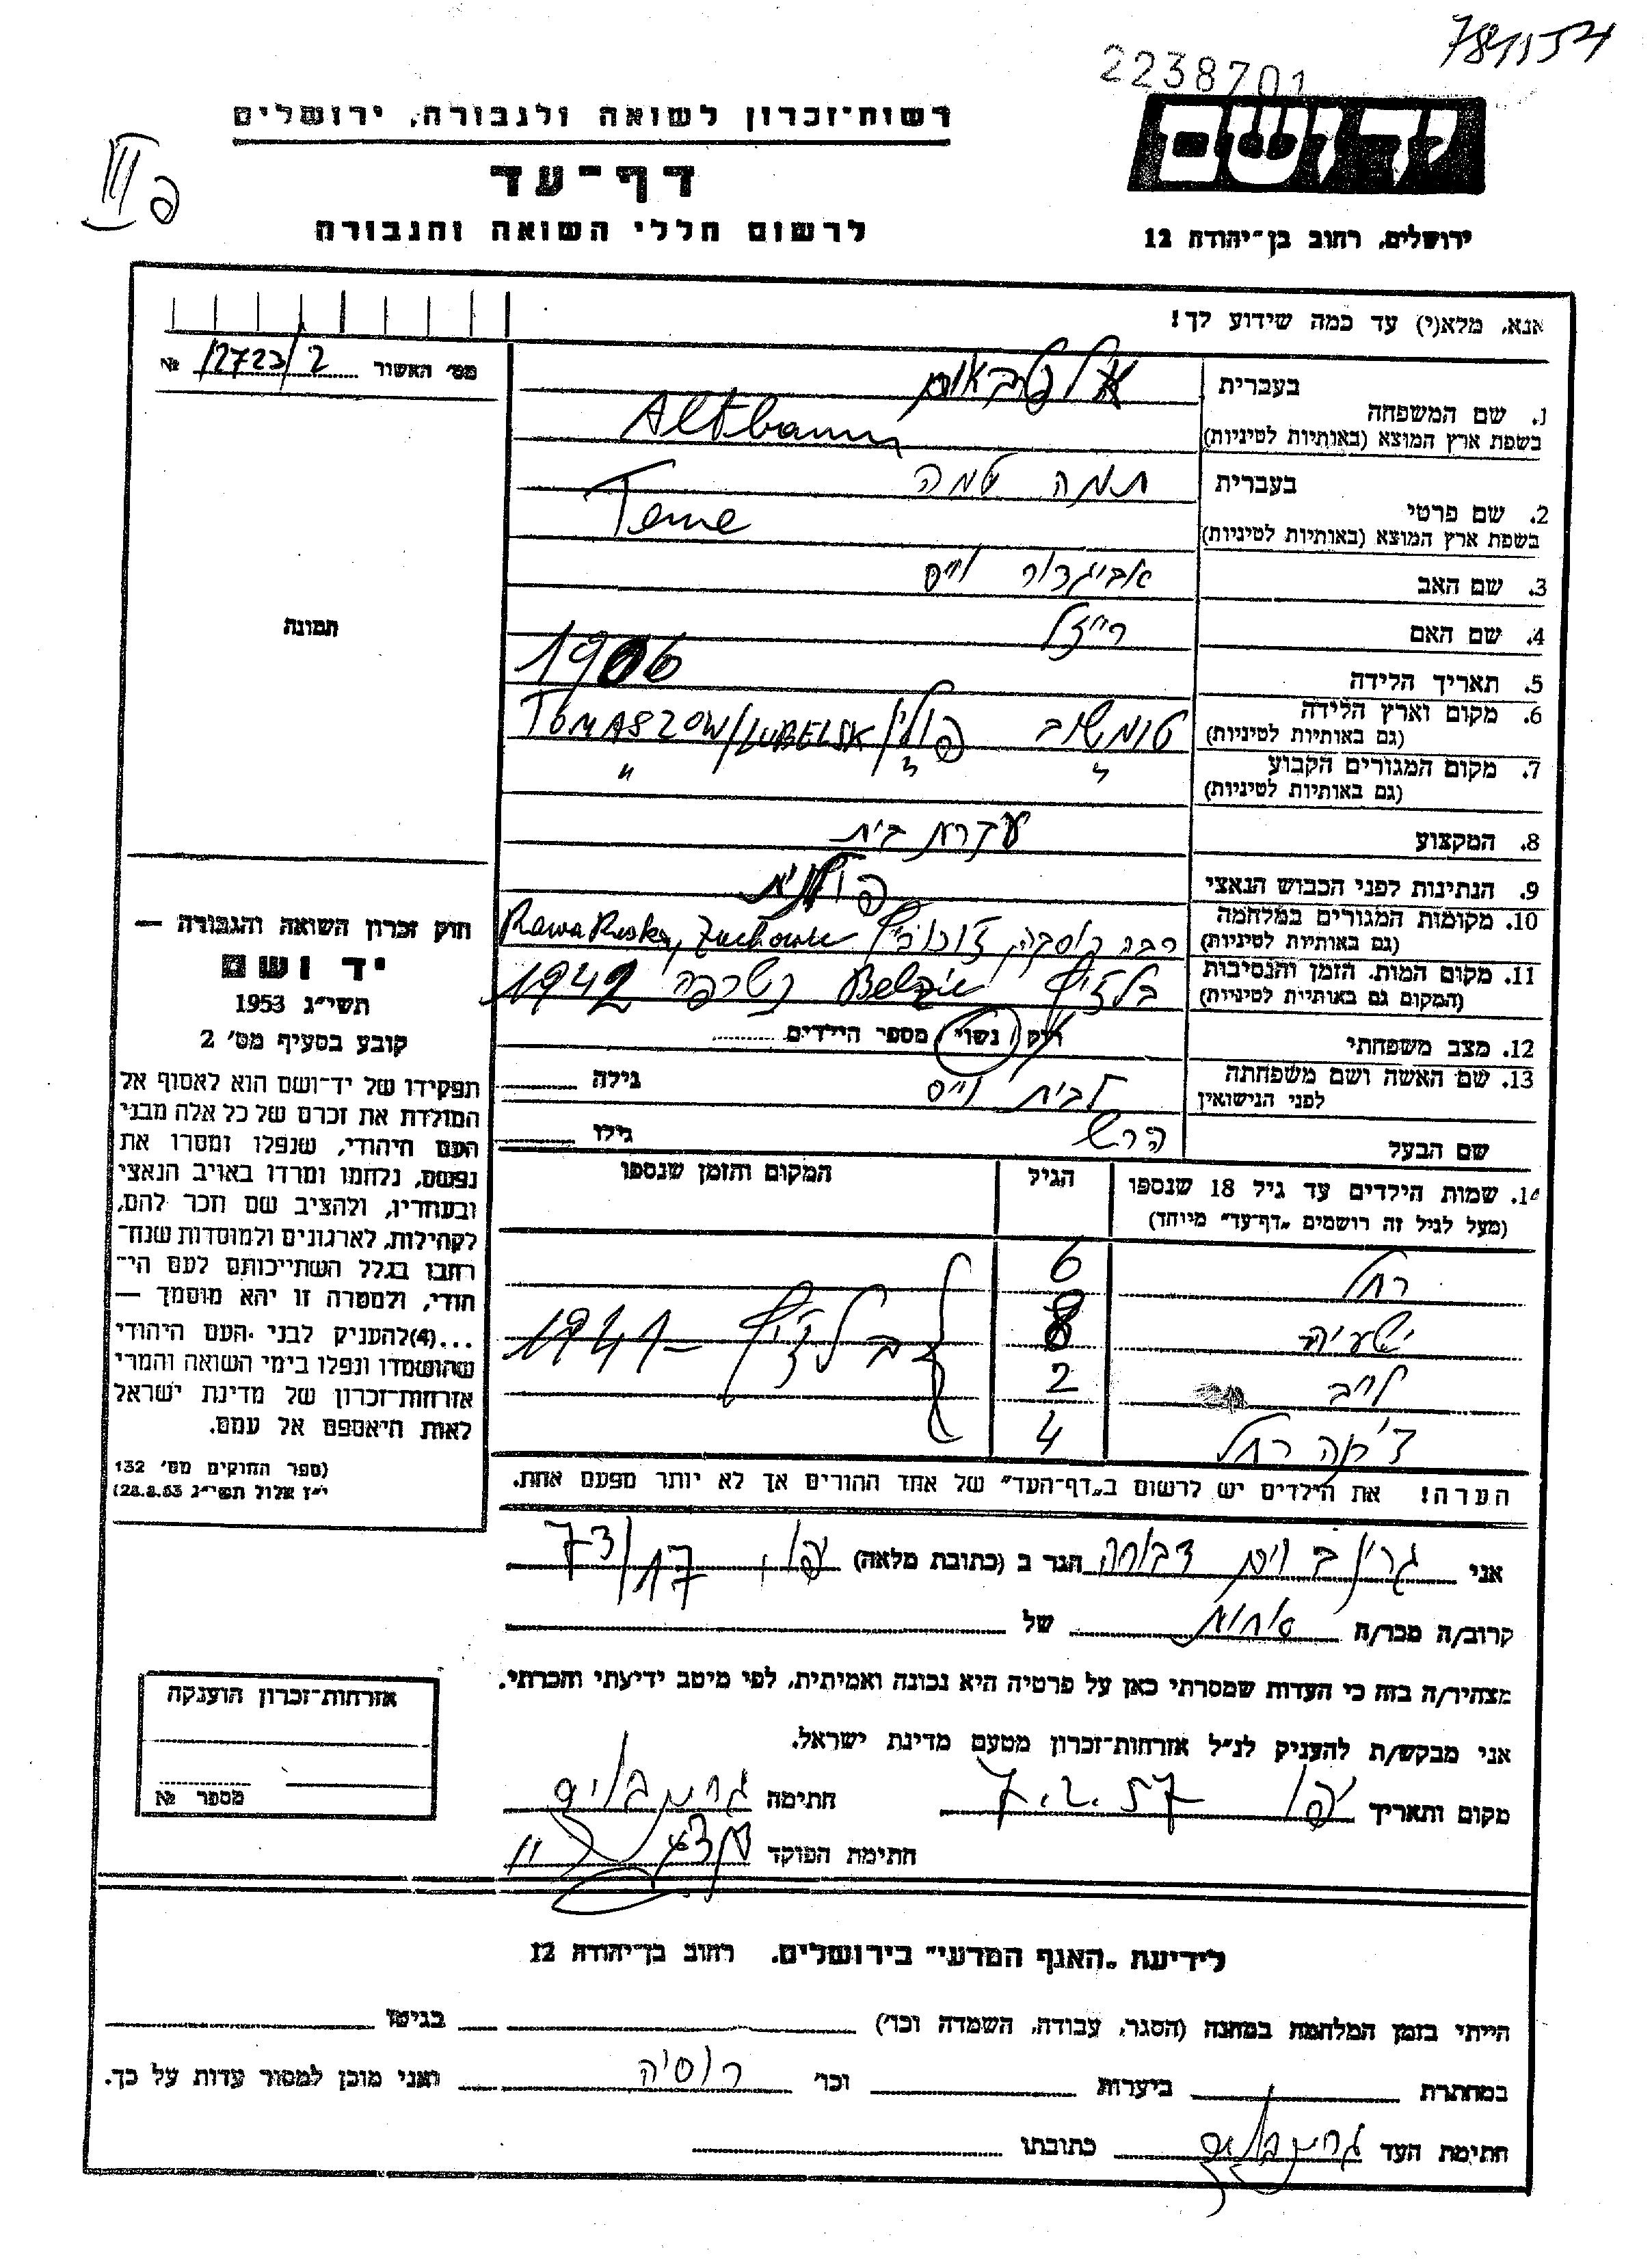 784154
2238701
יד ושם
ירושלים, רחוב בן־יהודה 12
רשות־זכרון לשואה ולגבורה, ירושלים
דף־עד
לרשום חללי השואה והגבורה
III פ
אנא, מלא(י) עד כמה שידוע לך!
מס׳ האשור 12723/2 №
תמונה
1. שם המשפחה
בעברית אלטבאום
בשפת ארץ המוצא (באותיות לטיניות) Altbaum
2. שם פרטי
בעברית תמה טמה
בשפת ארץ המוצא (באותיות לטיניות) Teme
3. שם האב אביגדור וייס
4. שם האם רייזל
5. תאריך הלידה 1906
6. מקום וארץ הלידה טומשוב פולין/TOMASZOW/LUBELSK
(גם באותיות לטיניות)
7. מקום המגורים הקבוע " " "
(גם באותיות לטיניות)
8. המקצוע עקרת בית
9. הנתינות לפני הכבוש הנאצי פולנית
10. מקומות המגורים במלחמה רבה רוסקה, Rawa Ruska,
(גם באותיות לטיניות)
11. מקום המות, הזמן והנסיבות בלזיץ Belzic נשרפה 1942
(המקום גם באותיות לטיניות)
12. מצב משפחתי רוק / נשוי מספר הילדים
13. שם האשה ושם משפחתה לבית וייס גילה
לפני הנישואין
שם הבעל הרש גילו
14. שמות הילדים עד גיל 18 שנספו הגיל המקום והזמן שנספו
(מעל לגיל זה רושמים „דף־עד" מיוחד)
רחל 6
ישעיה 8 בלזיץ – 1941
לייב 2
רחל 4
הערה! את הילדים יש לרשום ב„דף־העד" של אחד ההורים אך לא יותר מפעם אחת.
חוק זכרון השואה והגבורה —
יד ושם
תשי״ג 1953
קובע בסעיף מס׳ 2
תפקידו של יד־ושם הוא לאסוף אל
המולדת את זכרם של כל אלה מבני
העם היהודי, שנפלו ומסרו את
נפשם, נלחמו ומרדו באויב הנאצי
ובעוזריו, ולהציב שם וזכר להם,
לקהילות, לארגונים ולמוסדות שנח־
רבו בגלל השתייכותם לעם הי־
הודי, ולמטרה זו יהא מוסמך —
...(4) להעניק לבני העם היהודי
שהושמדו ונפלו בימי השואה והמרי
אזרחות־זכרון של מדינת ישראל
לאות היאספם אל עמם.
(ספר החוקים מס׳ 132
י״ז אלול תשי״ג 28.8.53)
אני גרינבוים דבורה הגר ב (כתובת מלאה) עכו, 73/17
קרוב/ה מכר/ה אחות של
מצהיר/ה בזה כי העדות שמסרתי כאן על פרטיה היא נכונה ואמיתית, לפי מיטב ידיעתי והכרתי.
אני מבקש/ת להעניק לנ״ל אזרחות־זכרון מטעם מדינת ישראל.
מקום ותאריך עכו 7.2.57 חתימה גרינבוים
חתימת הפוקד
אזרחות־זכרון הוענקה
מספר №
לידיעת „האגף המדעי" בירושלים. רחוב בן־יהודה 12
הייתי בזמן המלחמה במחנה (הסגר, עבודה, השמדה וכד׳) בגיטו
במחתרת ביערות וכו׳ רוסיה ואני מוכן למסור עדות על כך.
חתימת העד גרינבוים כתובתו